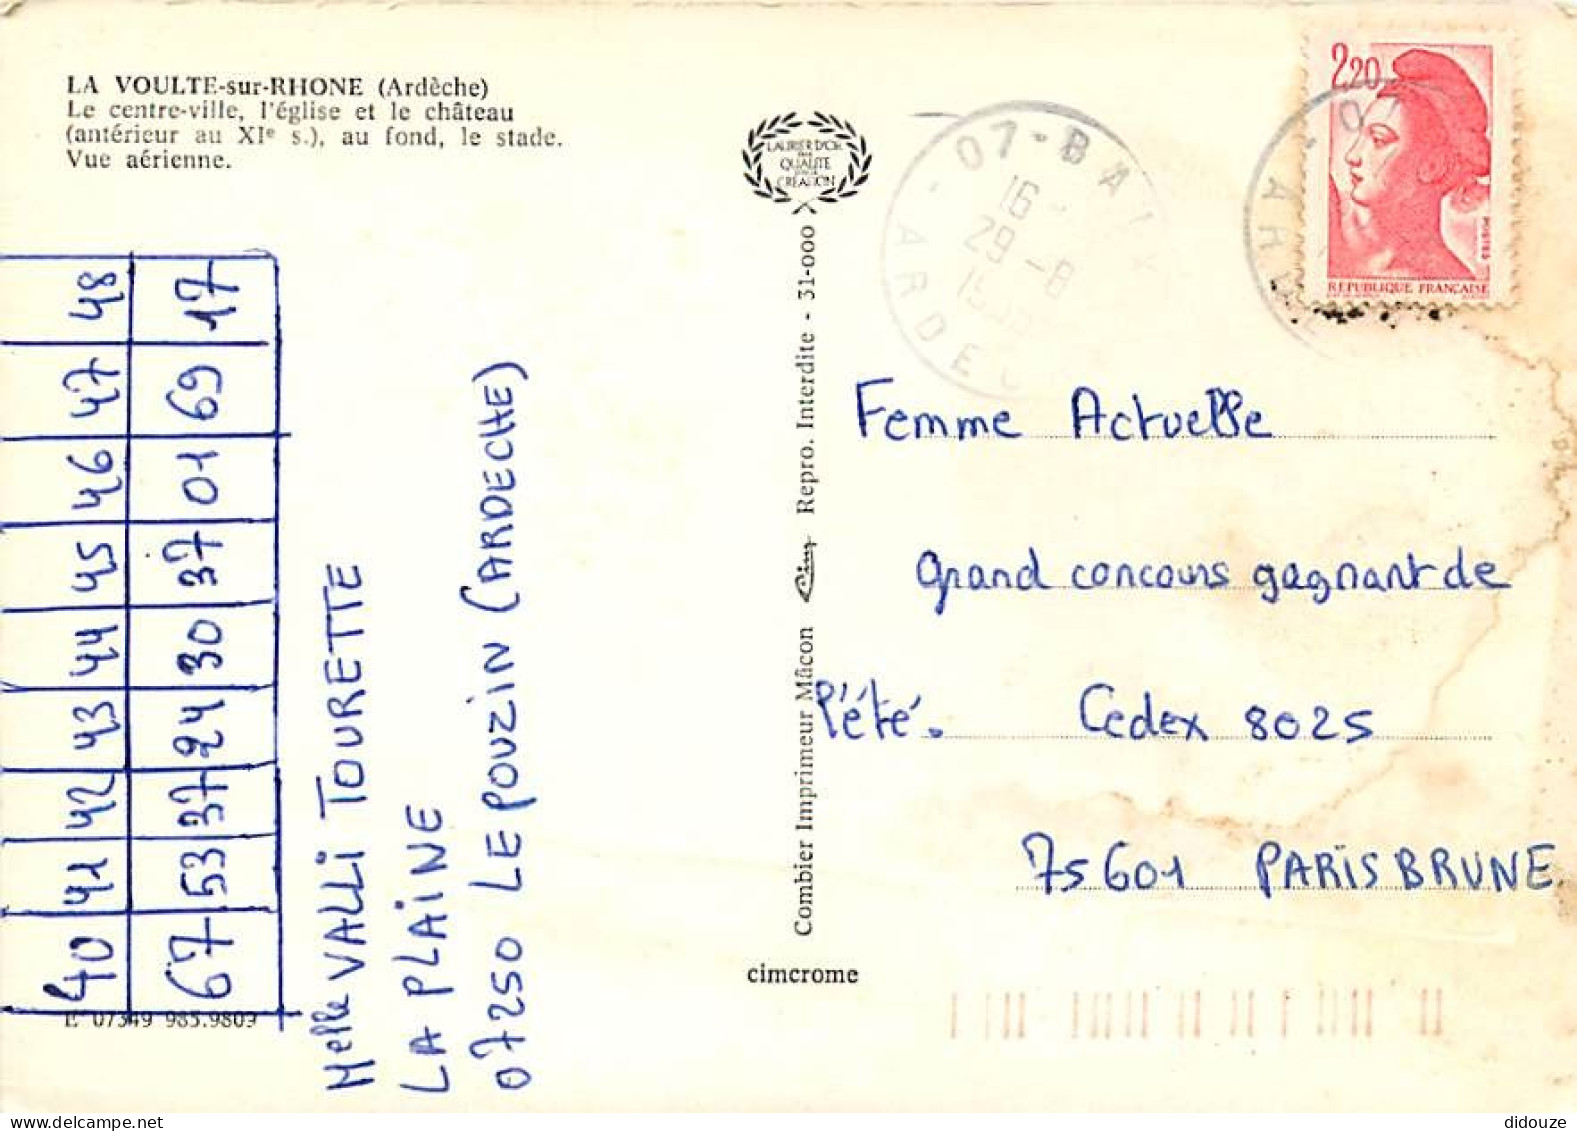 LA VOULTE-sur-RHONE (Ardèche)
Le centre-ville, l'église et le château
(antérieur au XIe s.), au fond, le stade.
Vue aérienne.
LAURIER D'OR
QUALITÉ
CRÉATION
07-BAIX
16-
29-8
ARDECHE
2,20
POSTES
REPUBLIQUE FRANÇAISE
40 41 42 43 44 45 46 47 48
67 53 37 24 30 37 01 69 17
Melle VALLI TOURETTE
LA PLAINE
07250 LE POUZIN (ARDECHE)
E 07349 985.9809
Combier Imprimeur Mâcon Cim Repro. Interdite - 31-000
cimcrome
Femme Actuelle
grand concours gagnant de
l'été. Cedex 8025
75601 PARIS BRUNE.
didouze